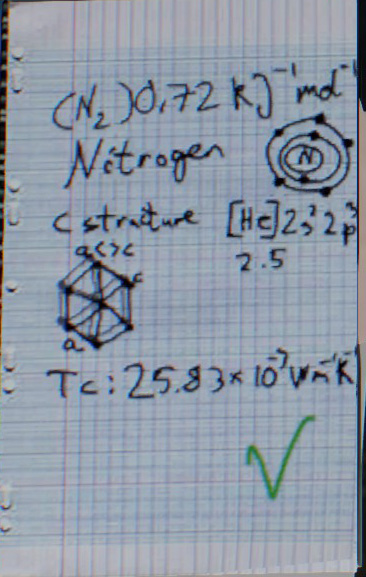 (N₂) 0.72 kJ⁻¹mol⁻¹
Nitrogen
N
C structure [He]2s²2p³
2.5
a<>c
c
a
Tc: 25.83×10⁻³Wm⁻¹K⁻